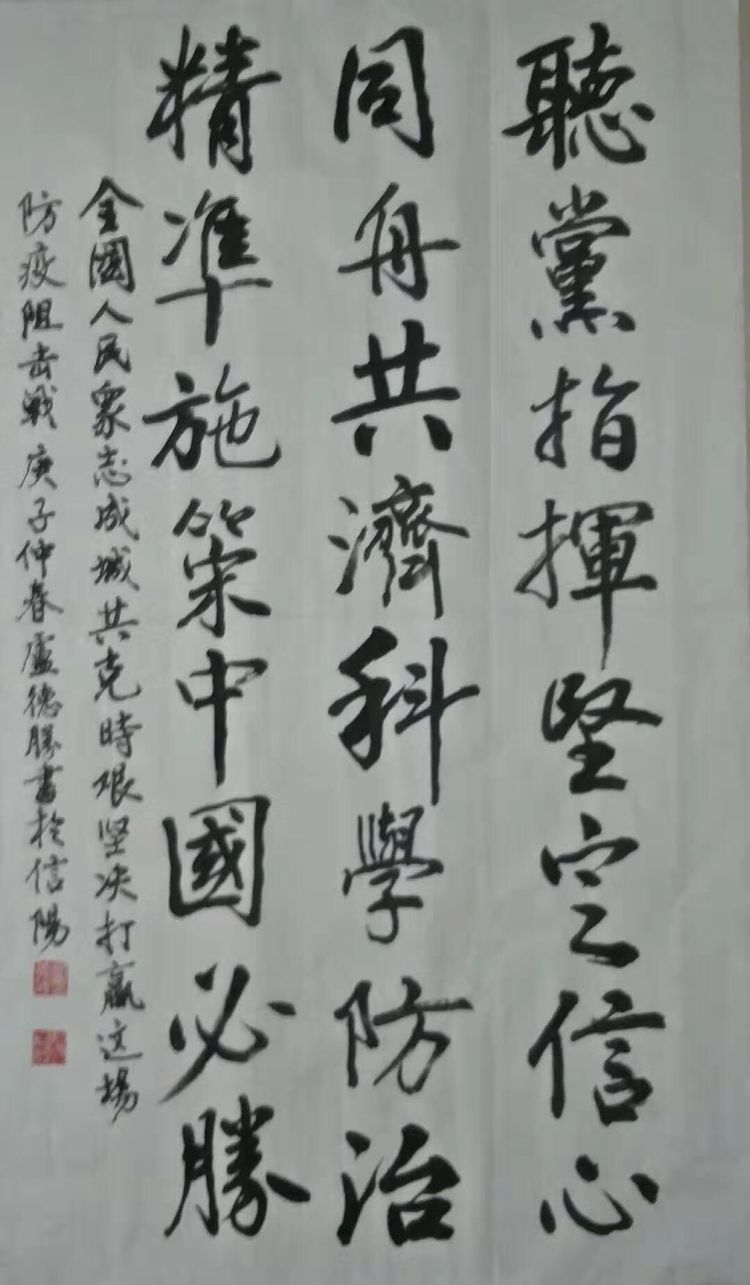 聽黨指揮堅定信心
同舟共濟科學防治
精準施策中國必勝
全國人民衆志成城共克時艱坚决打赢这場
防疫阻击戰庚子仲春盧德勝書於信陽